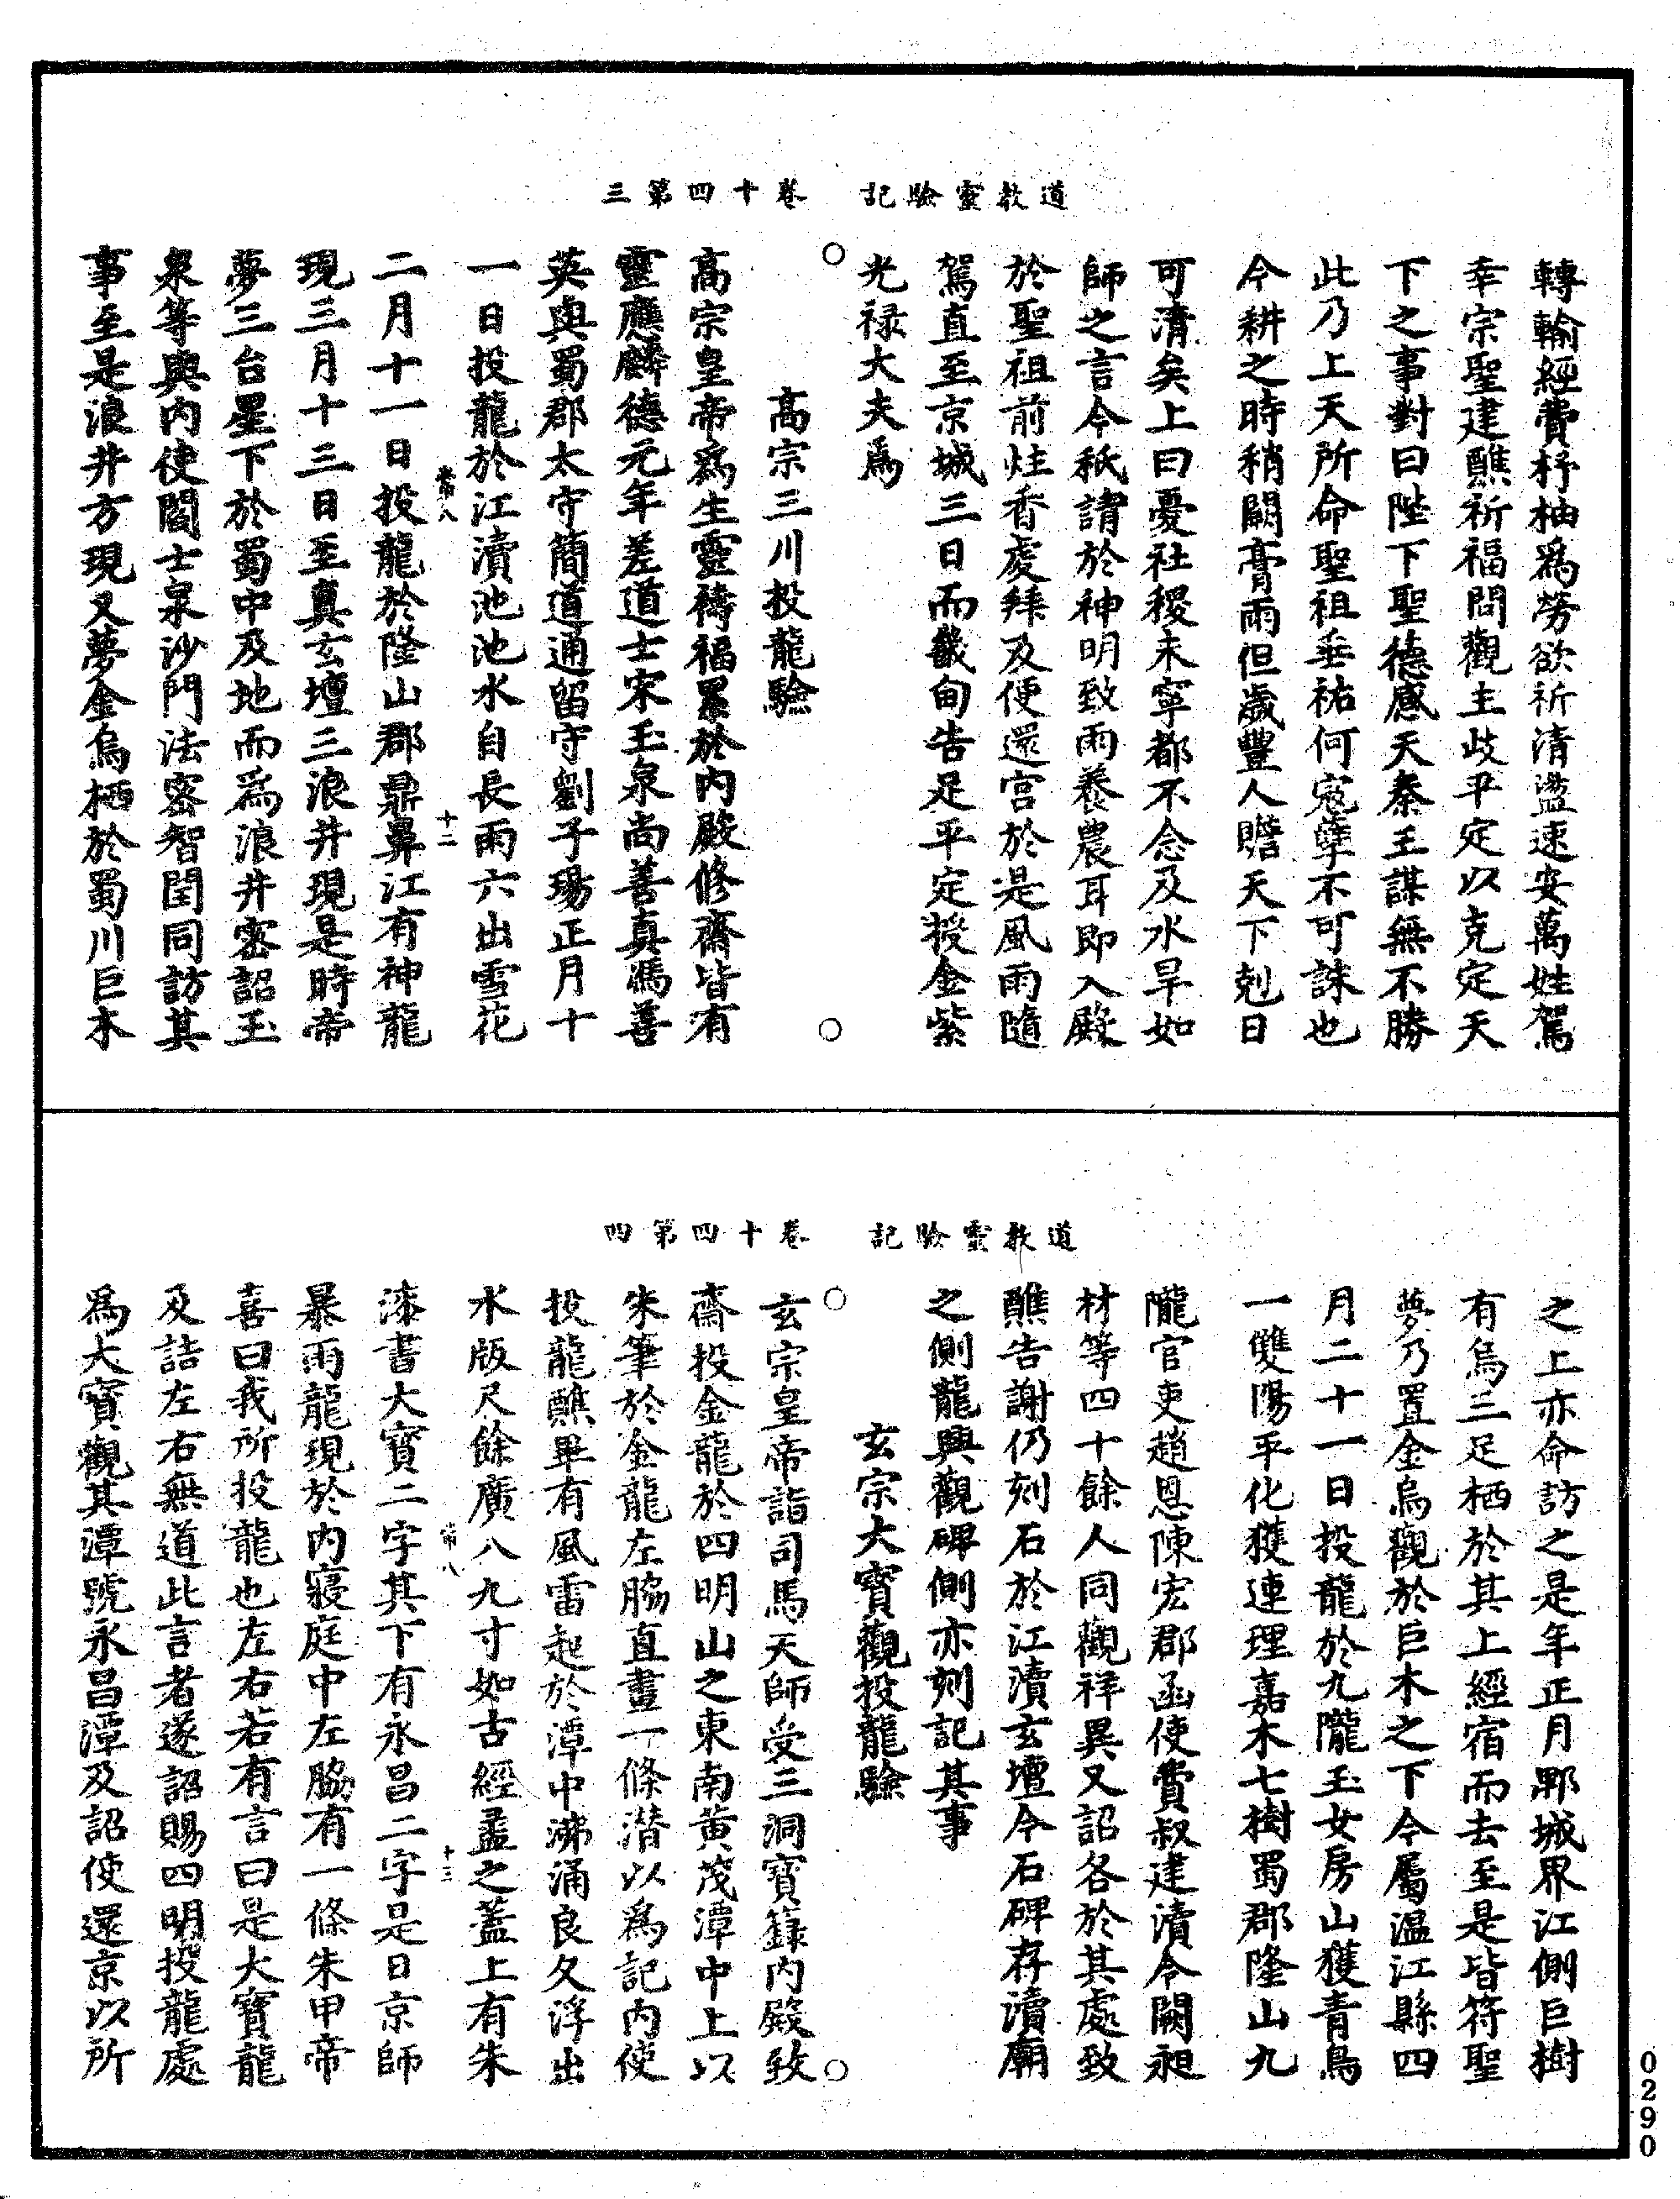 道教靈驗記　卷十四第三
轉輸經費杼柚爲勞欲祈清盪速安萬姓駕
幸宗聖建醮祈福問觀主歧平定以克定天
下之事對曰陛下聖德感天秦王謀無不勝
此乃上天所命聖祖垂祐何寇孽不可誅也
今耕之時稍闕膏雨但歲豐人贍天下剋日
可清矣上曰憂社稷未寧都不念及水旱如
師之言今秖請於神明致雨養農耳即入殿
於聖祖前炷香處拜及便還宮於是風雨隨
駕直至京城三日而畿甸告足平定授金紫
光禄大夫焉
高宗三川投龍驗
高宗皇帝爲生靈禱福累於内殿修齋皆有
靈應麟德元年差道士宋玉泉尚善真馮善
英與蜀郡太守簡道通留守劉子瑒正月十
一日投龍於江瀆池池水自長雨六出雪花
常八
十二
二月十一日投龍於隆山郡鼎鼻江有神龍
現三月十三日至真玄壇三浪井現是時帝
夢三台星下於蜀中及地而爲浪井密詔玉
泉等與内使閻士泉沙門法密智閏同訪其
事至是浪井方現又夢金烏栖於蜀川巨木
道教靈驗記　卷十四第四
之上亦命訪之是年正月郫城界江側巨樹
有烏三足栖於其上經宿而去至是皆符聖
夢乃置金烏觀於巨木之下今屬温江縣四
月二十一日投龍於九隴玉女房山獲青烏
一雙陽平化獲連理嘉木七樹蜀郡隆山九
隴官吏趙恩陳宏郡函使費叔建瀆令闕昶
材等四十餘人同觀祥異又詔各於其處致
醮告謝仍刻石於江瀆玄壇今石碑存瀆廟
之側龍興觀碑側亦刻記其事
玄宗大寳觀投龍驗
玄宗皇帝詣司馬天師受三洞寳籙内殿致
齋投金龍於四明山之東南黄茂潭中上以
朱筆於金龍左脇直畫一條潛以爲記内使
投龍醮畢有風雷起於潭中沸涌良久浮出
木版尺餘廣八九寸如古經盝之蓋上有朱
常八
十三
漆書大寳二字其下有永昌二字是日京師
暴雨龍現於内寢庭中左脇有一條朱甲帝
喜曰我所投龍也左右若有言曰是大寳龍
及詰左右無道此言者遂詔賜四明投龍處
爲大寳觀其潭號永昌潭及詔使還京以所
0290